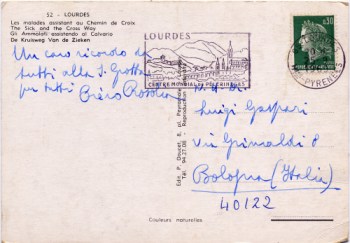 52 - LOURDES
Les malades assistant au Chemin de Croix
The Sick and the Cross Way
Gli Ammalati assistendo al Calvario
De Kruisweg Van de Zieken
LOURDES
CENTRE MONDIAL DE PELERINAGE
0,30
PYRENEES
Un caro ricordo da
tutti alla S. Grotta
per tutti
Edit. P. Doucet, 8, pl. Peyramale
Tél. 94.27.08 - Reproduction
Luigi Gaspari
via Grimaldi 8
Bologna (Italia)
40122
Couleurs naturelles